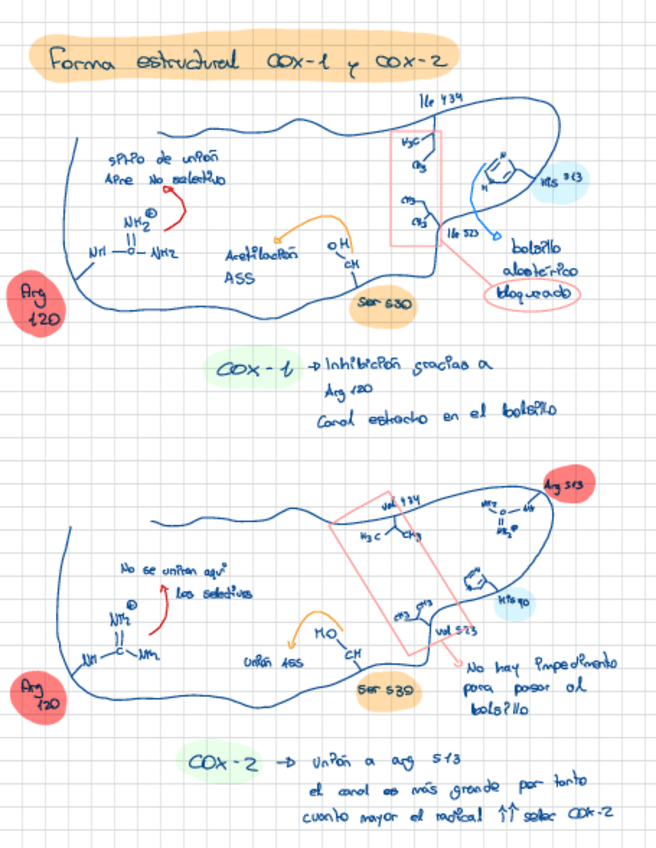 Forma estructural COX-1 y COX-2
Ile 434
H3C
CH3
sitio de unión
Aine No selectivo
N
N
H
His 513
NH2
NH
C
NH2
CH3
CH3
Ile 523
OH
CH
Acetilación
ASS
bolsillo
alostérico
bloqueado
Arg
120
Ser 530
COX-1 → Inhibición gracias a
Arg 120
Canal estrecho en el bolsillo
Arg 513
val 434
H3C
CH3
NH2
C
NH
NH2
No se unirán aquí
los selectivos
His 90
CH3
CH3
val 523
NH2
NH
C
NH2
HO
CH
Unión ASS
No hay impedimento
para pasar al
bolsillo
Arg
120
Ser 530
COX-2 → Unión a arg 513
el canal es más grande por tanto
cuanto mayor el radical ↑↑ selec COX-2